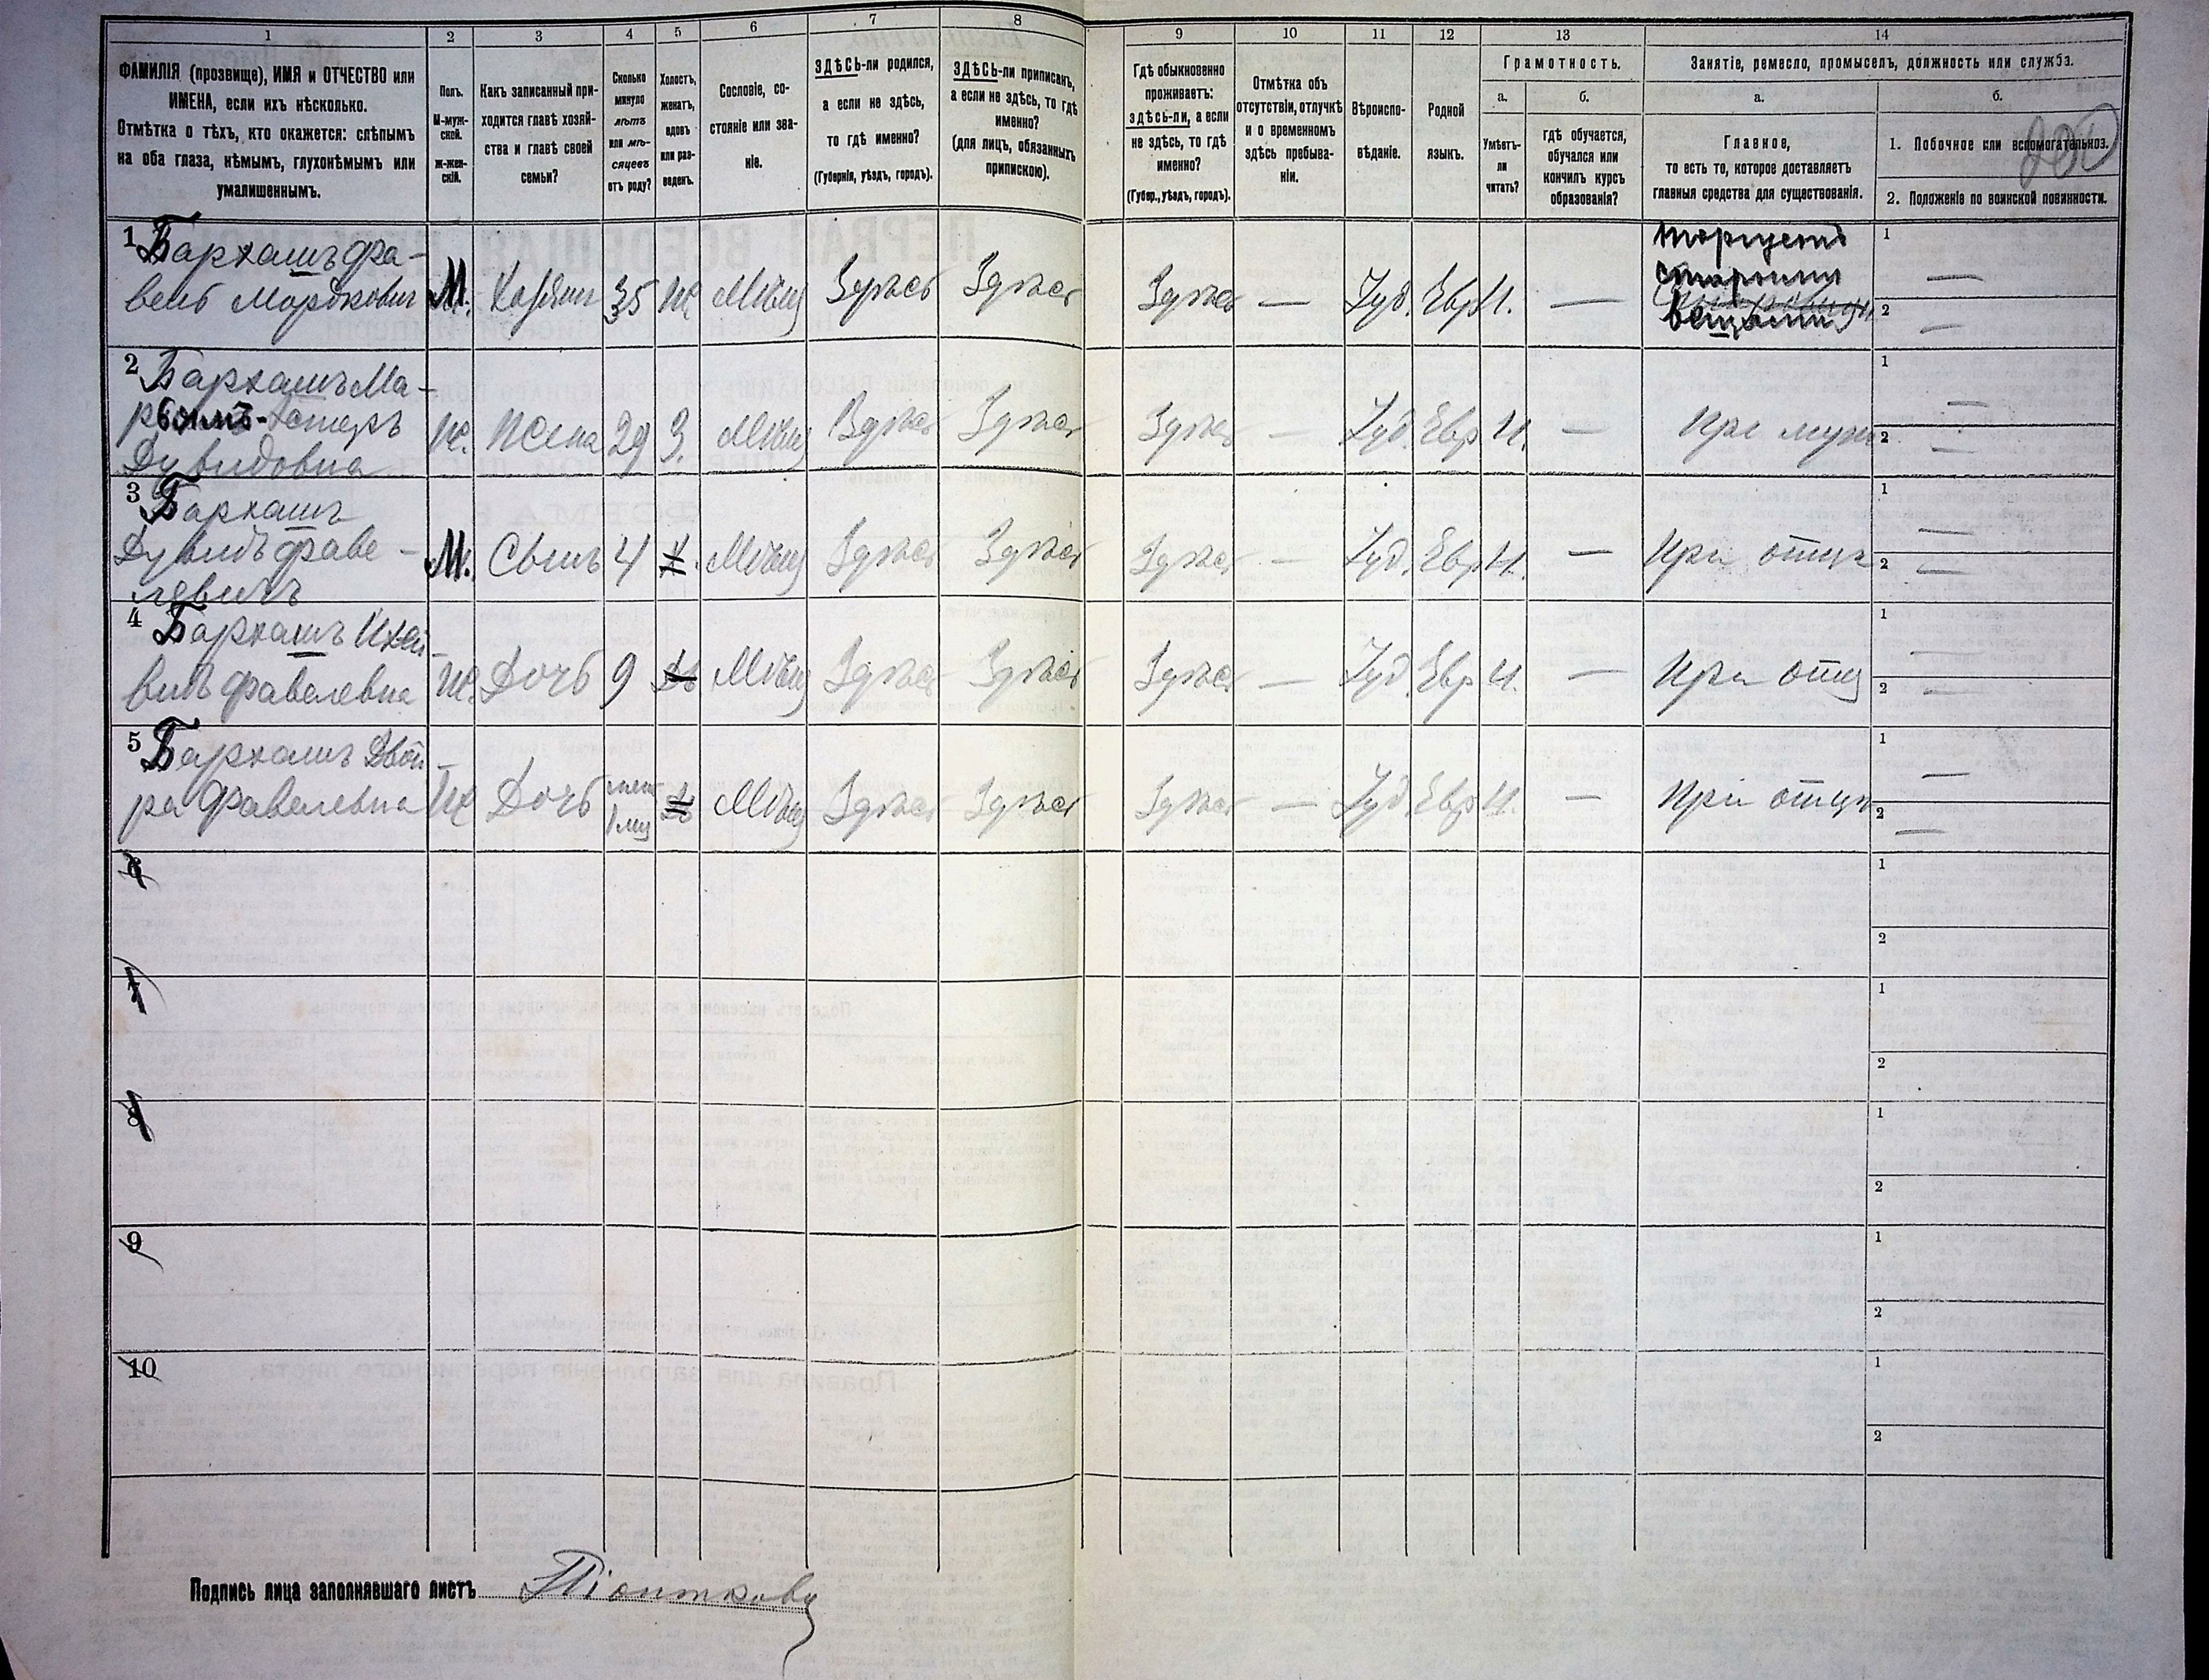 1
2
3
4
5
6
7
8
9
10
11
12
13
14
ФАМИЛІЯ (прозвище), ИМЯ и ОТЧЕСТВО или
ИМЕНА, если ихъ нѣсколько.
Отмѣтка о тѣхъ, кто окажется: слѣпымъ
на оба глаза, нѣмымъ, глухонѣмымъ или
умалишеннымъ.
Полъ.
М-муж-
ской.
ж-жен-
скій.
Какъ записанный при-
ходится главѣ хозяй-
ства и главѣ своей
семьи?
Сколько
минуло
лѣтъ
или мѣ-
сяцевъ
отъ роду?
Холостъ,
женатъ,
вдовъ
или раз-
веденъ.
Сословіе, со-
стояніе или зва-
ніе.
ЗДѢСЬ-ли родился,
а если не здѣсь,
то гдѣ именно?
(Губернія, уѣздъ, городъ).
ЗДѢСЬ-ли приписанъ,
а если не здѣсь, то гдѣ
именно?
(для лицъ, обязанныхъ
припискою).
Гдѣ обыкновенно
проживаетъ:
здѣсь-ли, а если
не здѣсь, то гдѣ
именно?
(Губер., уѣздъ, городъ).
Отмѣтка объ
отсутствіи, отлучкѣ
и о временномъ
здѣсь пребыва-
ніи.
Вѣроиспо-
вѣданіе.
Родной
языкъ.
Грамотность.
а.
б.
Умѣетъ-
ли
читать?
гдѣ обучается,
обучался или
кончилъ курсъ
образованія?
Занятіе, ремесло, промыселъ, должность или служба.
а.
б.
Главное,
то есть то, которое доставляетъ
главныя средства для существованія.
1. Побочное или вспомогательное.
2. Положеніе по воинской повинности.
1 Бархашъ Фра-
вель Мордкович М. Хозяин 35 Ж Мѣщ Здѣсь Здѣсь Здѣсь — Іуд. Евр Н. — торгуетъ 1 —
старыми
вещами 2 —
2 Бархашъ Ма-
Эстеръ
Дувидовна Ж. Жена 29 З. Мѣщ Здѣсь Здѣсь Здѣсь — Іуд. Евр Н. — При муж 1 — 2 —
3 Бархашъ
Дувидъ Фраве-
левичъ М. Сынъ 4 Х. Мѣщ Здѣсь Здѣсь Здѣсь — Іуд. Евр Н. — При отцѣ 1 — 2 —
4 Бархашъ
Фравелевна Ж. Дочь 9 Дѣ Мѣщ Здѣсь Здѣсь Здѣсь — Іуд. Евр Н. — При отц 1 — 2 —
5 Бархашъ Двой-
ра Фравелевна Ж Дочь 1 мц Мѣщ Здѣсь Здѣсь Здѣсь — Іуд. Евр Н. — При отцѣ 1 — 2 —
6 1
2
7 1
2
8 1
2
9 1
2
10 1
2
Подпись лица заполнявшаго листъ